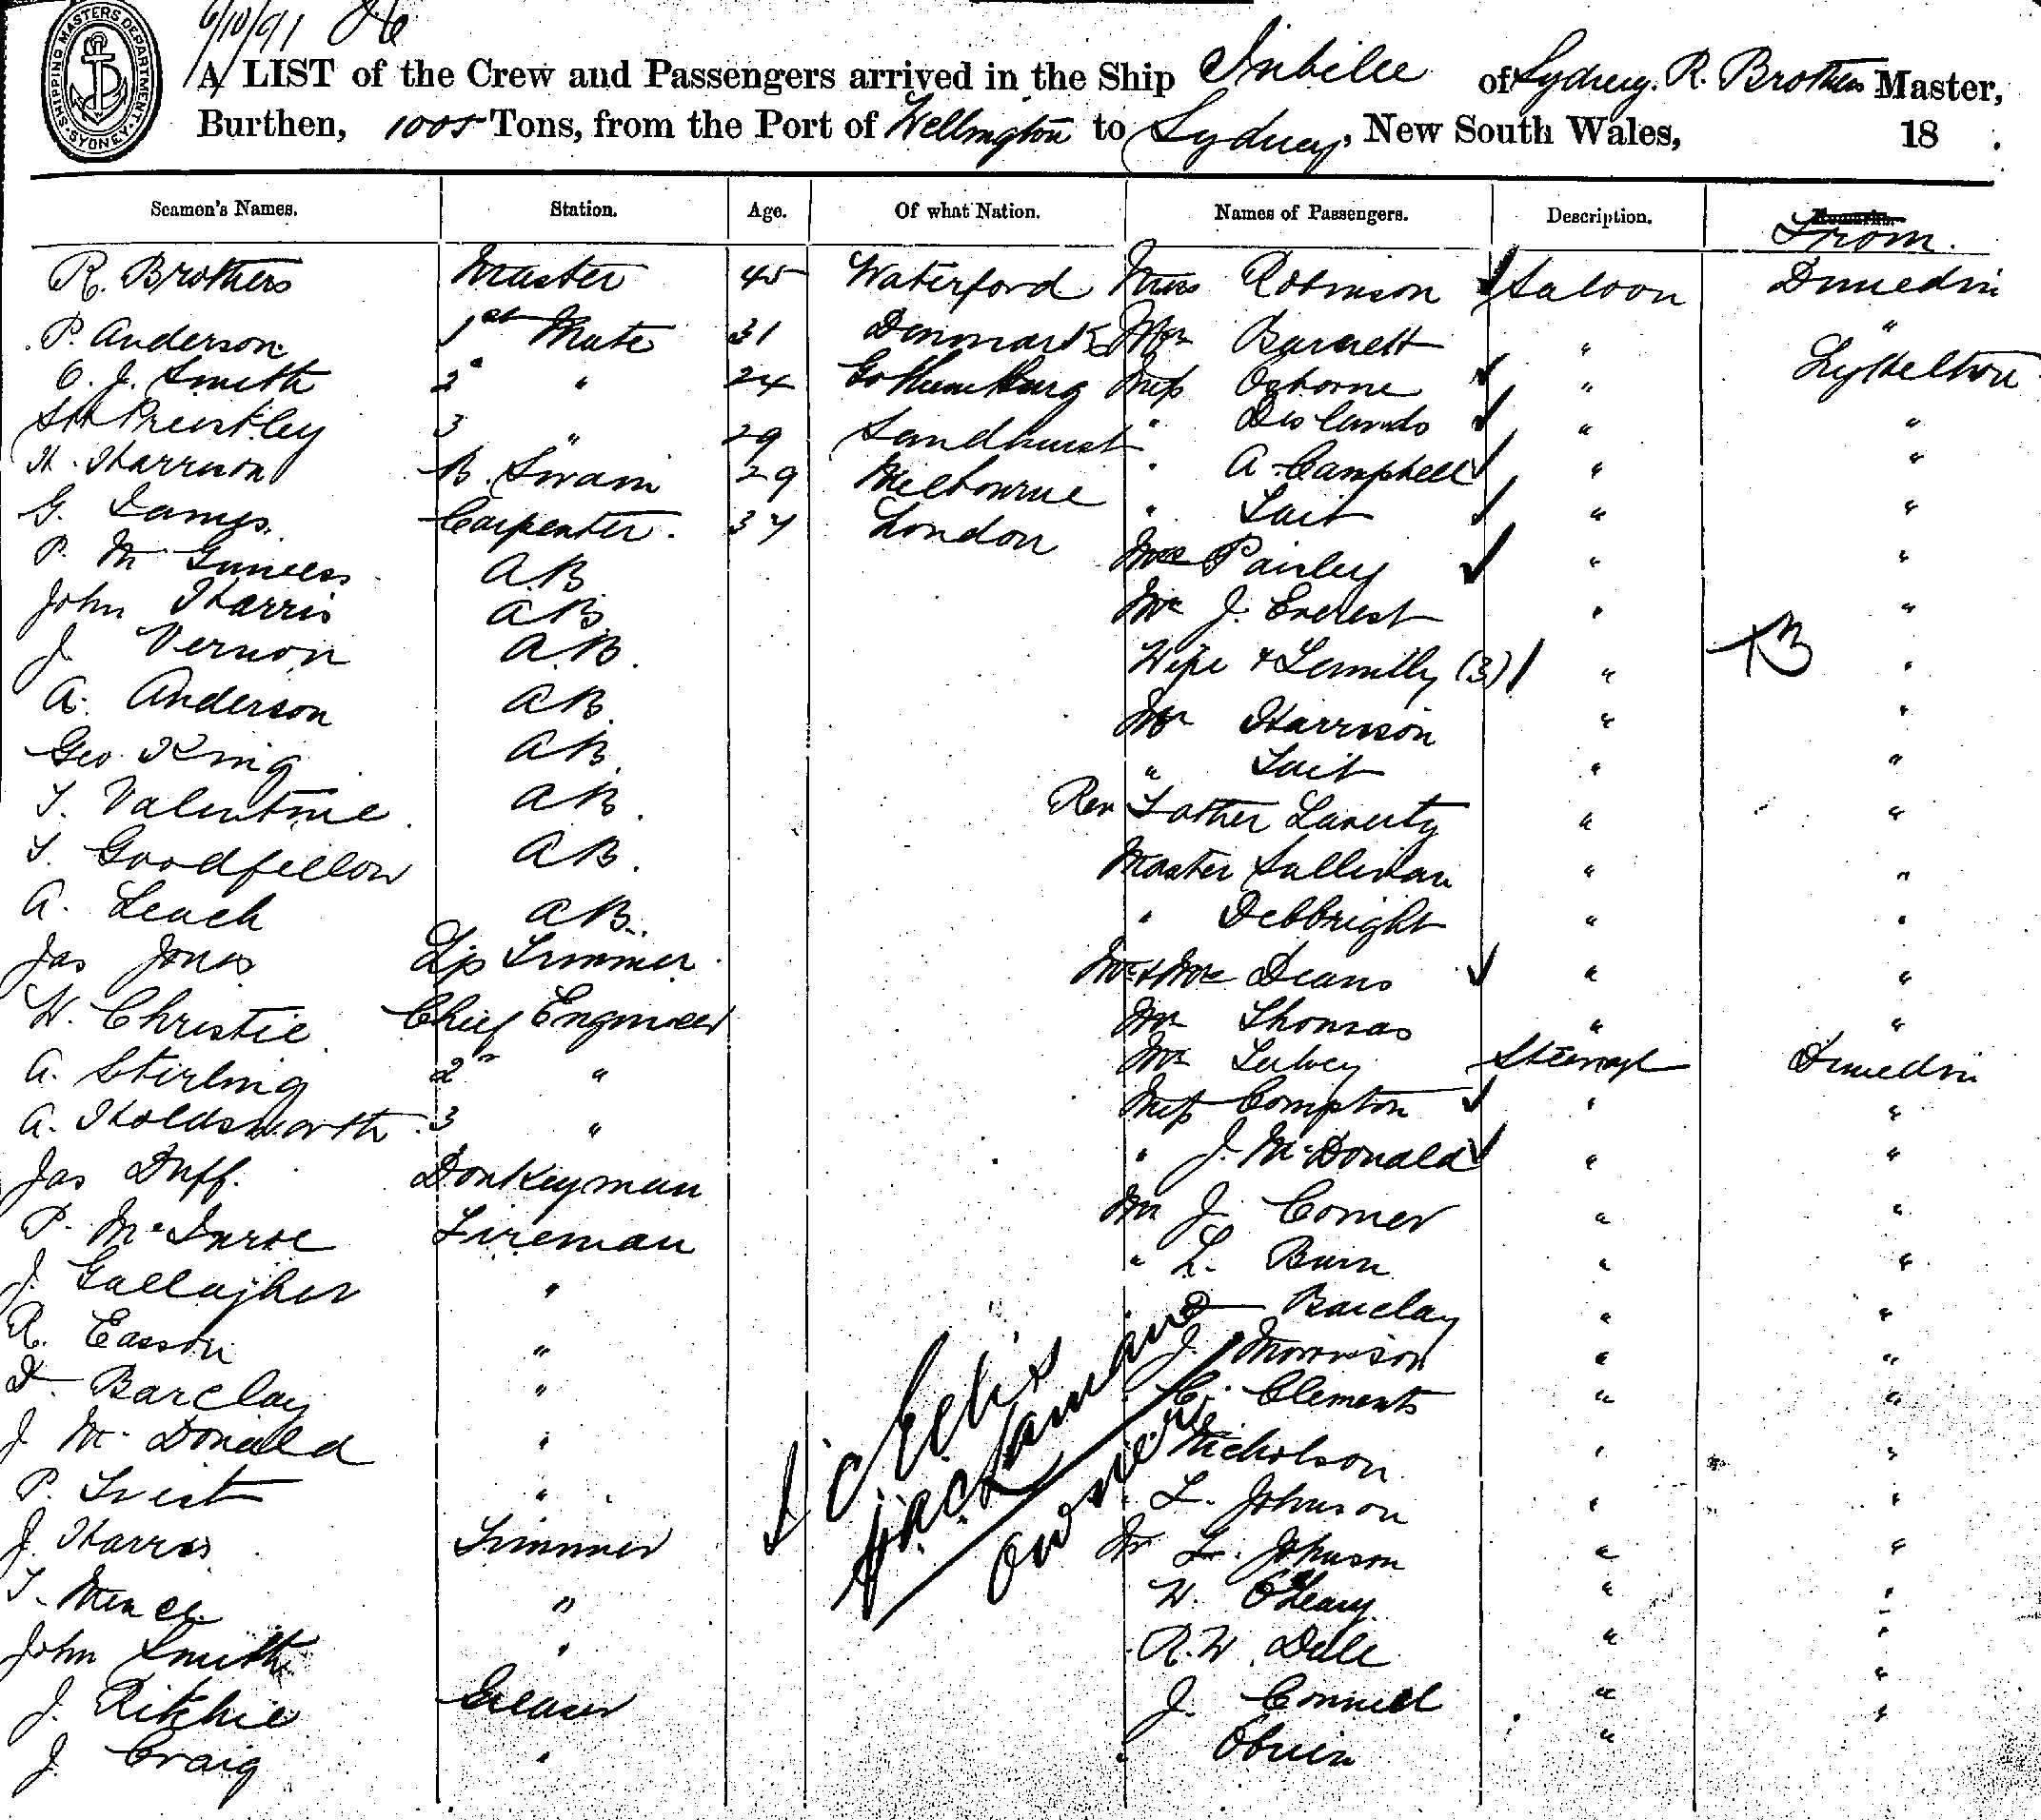 6/10/91
SHIPPING MASTERS DEPARTMENT SYDNEY
A LIST of the Crew and Passengers arrived in the Ship Jubilee of Sydney. R. Brothers Master,
Burthen, 1005 Tons, from the Port of Wellington to Sydney, New South Wales, 18 .
Seamen's Names. Station. Age. Of what Nation. Names of Passengers. Description. Remarks.
From.
R. Brothers Master 45 Waterford Miss Robinson Saloon Dunedin
P. Anderson 1st Mate 31 Denmark Mr Barnett " "
C. J. Smith 2d " 24 Gothenburg Miss Osborne " Lyttelton
3 " 29 Sandhurst " " "
H. Harrison B. Swain 29 Melbourne " A. Campbell " "
G. James Carpenter. 34 London " Tait " "
P. Mc Guness AB Mrs Paisley " "
John Harris AB. Mr J. Everest " "
J Vernon A.B. Wife & Family (3) " "
A. Anderson AB. Mr Harrison " "
Geo King AB. " Tait " "
T. Valentine AB. Rev Father Laverty " "
T. Goodfellow AB. Master Sullivan " "
A. Leach AB. " Debbright " "
Jas Jones Lp Trimmer Mr & Mrs Deans " "
W. Christie Chief Engineer Mr Thomas " "
A. Stirling 2n " Mr Steerage Dunedin
A. Holdsworth 3 " Miss Compton " "
Jas Duff. Donkeyman " J. McDonald " "
P. Fireman Mr J. Comer " "
J. Gallagher " " L. Burn " "
R. Easson " " D Barclay " "
D. Barclay " " J. Morrison " "
J Mc Donald " " C. Clements " "
P. " " Nicholson " "
J. Harris Trimmer " L. Johnson " "
T. " Mr L. Johnson " "
John Smith " W. O'Leary " "
J. Ritchie Greaser R. W. Dale " "
J. Craig " J. Connell " "
" Obrien "
C Ellis
Jack
owner